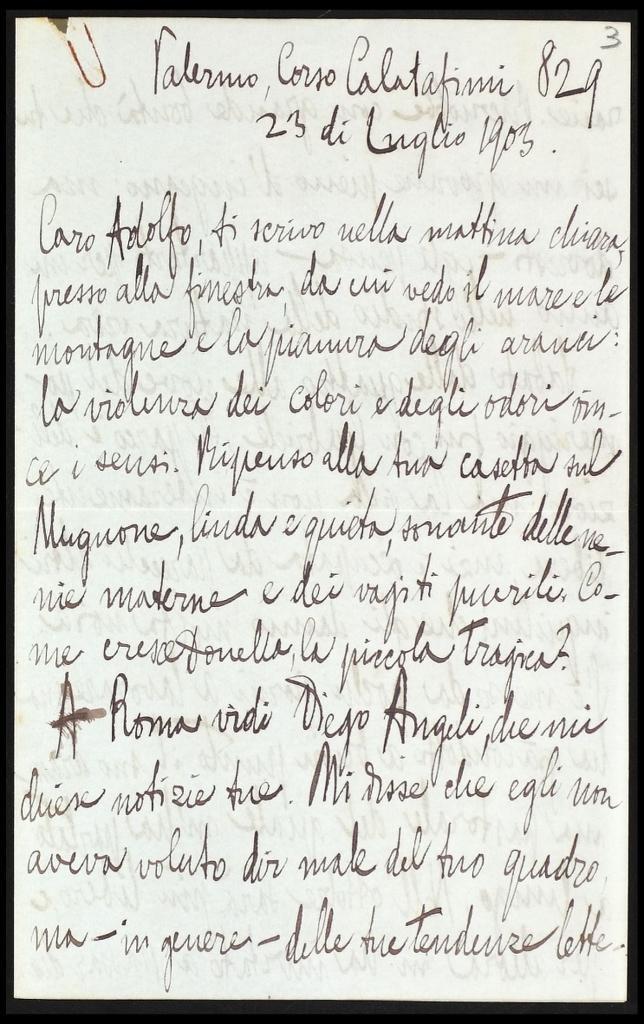 3
Palermo, Corso Calatafimi 829
23 di Luglio 1903.
Caro Adolfo, ti scrivo nella mattina chiara,
presso alla finestra, da cui vedo il mare e le
montagne e la pianura degli aranci:
la violenza dei colori e degli odori vin-
ce i sensi. Ripenso alla tua casetta sul
Mugnone, linda e quieta, sonante delle ne-
nie materne e dei vagiti puerili. Co-
me cresce Donella, la piccola tragica?
A Roma vidi Diego Angeli, che mi
chiese notizie tue. Mi disse che egli non
aveva voluto dir male del tuo quadro,
ma - in genere - delle tue tendenze lette-